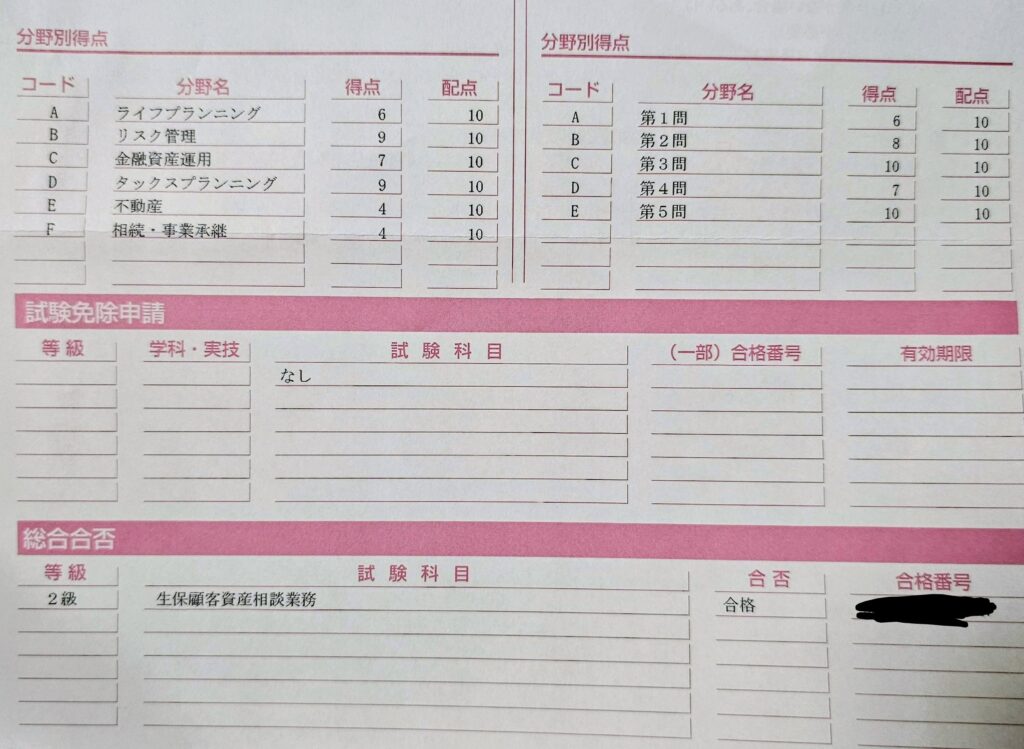 分野別得点
コード 分野名 得点 配点
A ライフプランニング 6 10
B リスク管理 9 10
C 金融資産運用 7 10
D タックスプランニング 9 10
E 不動産 4 10
F 相続・事業承継 4 10
分野別得点
コード 分野名 得点 配点
A 第1問 6 10
B 第2問 8 10
C 第3問 10 10
D 第4問 7 10
E 第5問 10 10
試験免除申請
等級 学科・実技 試験科目 (一部)合格番号 有効期限
なし
総合合否
等級 試験科目 合否 合格番号
2級 生保顧客資産相談業務 合格